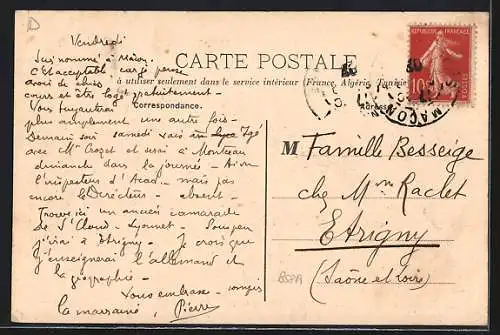 D
Vendredi
CARTE POSTALE
à utiliser seulement dans le service intérieur (France, Algérie, Tunisie
Correspondance.
Adresse
REPUBLIQUE FRANÇAISE
10
MACON
Suis nommé à Mâcon.
C'est acceptable car je pense
avoir de
cours et être logé gratuitement -
Vous
plus amplement une autre fois -
Demain soir samedi vais Igé
avec Mr Crozet et serai à Montceau
dimanche dans la journée - Ai vu
l'inspecteur d'Acad. - mais pas
encore le Directeur - absent -
Trouve ici un ancien camarade
de St Cloud - Lyonnet -
j'irai à Etrigny - Je crois que
j'enseignerai l'allemand et
la géographie -
Vous embrasse -
la marraine, Pierre
M Famille Besseige
chez Mme Raclet
Etrigny
(Saône et Loire)